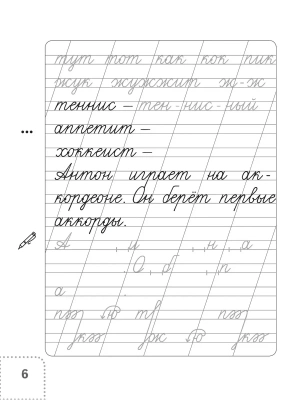 тут тот как кок пик
жук жужжит ж-ж
теннис – тен-нис-ный
аппетит –
хоккеист –
Антон играет на ак-
кордеоне. Он берёт первые
аккорды.
А , и , н , а
. О , б , , п
а .
6